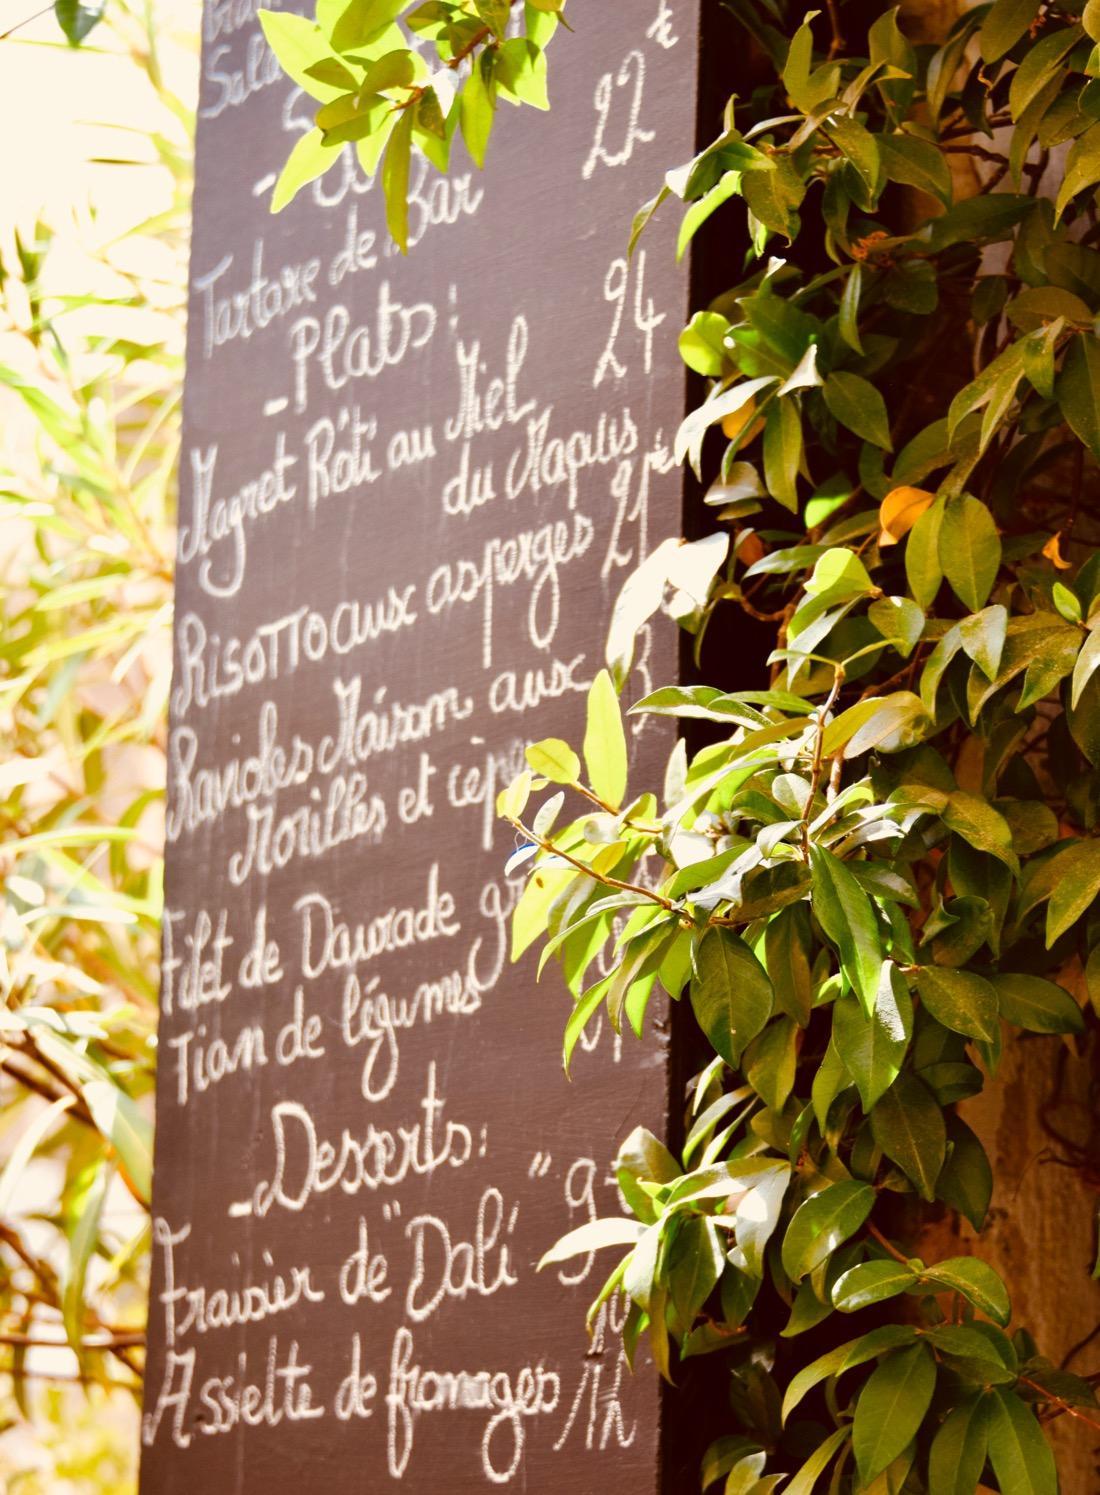 22 €
Tartare de Bar
- Plats :
24
Magret Rôti au Miel
du Maquis
Risotto aux asperges 21
Ravioles Maison aux
Morilles et cèpes
Filet de Daurade
Tian de légumes
- Desserts :
Fraisier de "Dali" 9
Assiette de fromages